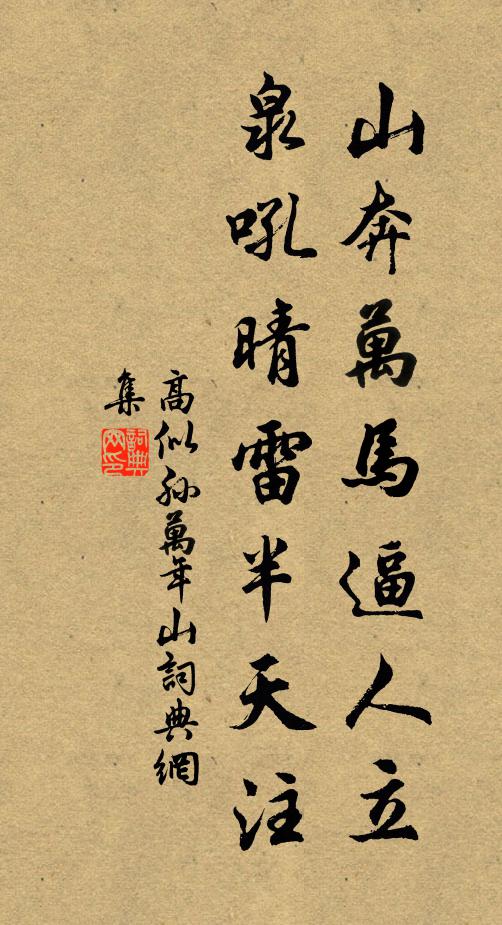 山奔萬馬逼人立
泉吼晴雷半天注
高似孫萬年山詞典網
集
詞典
网印